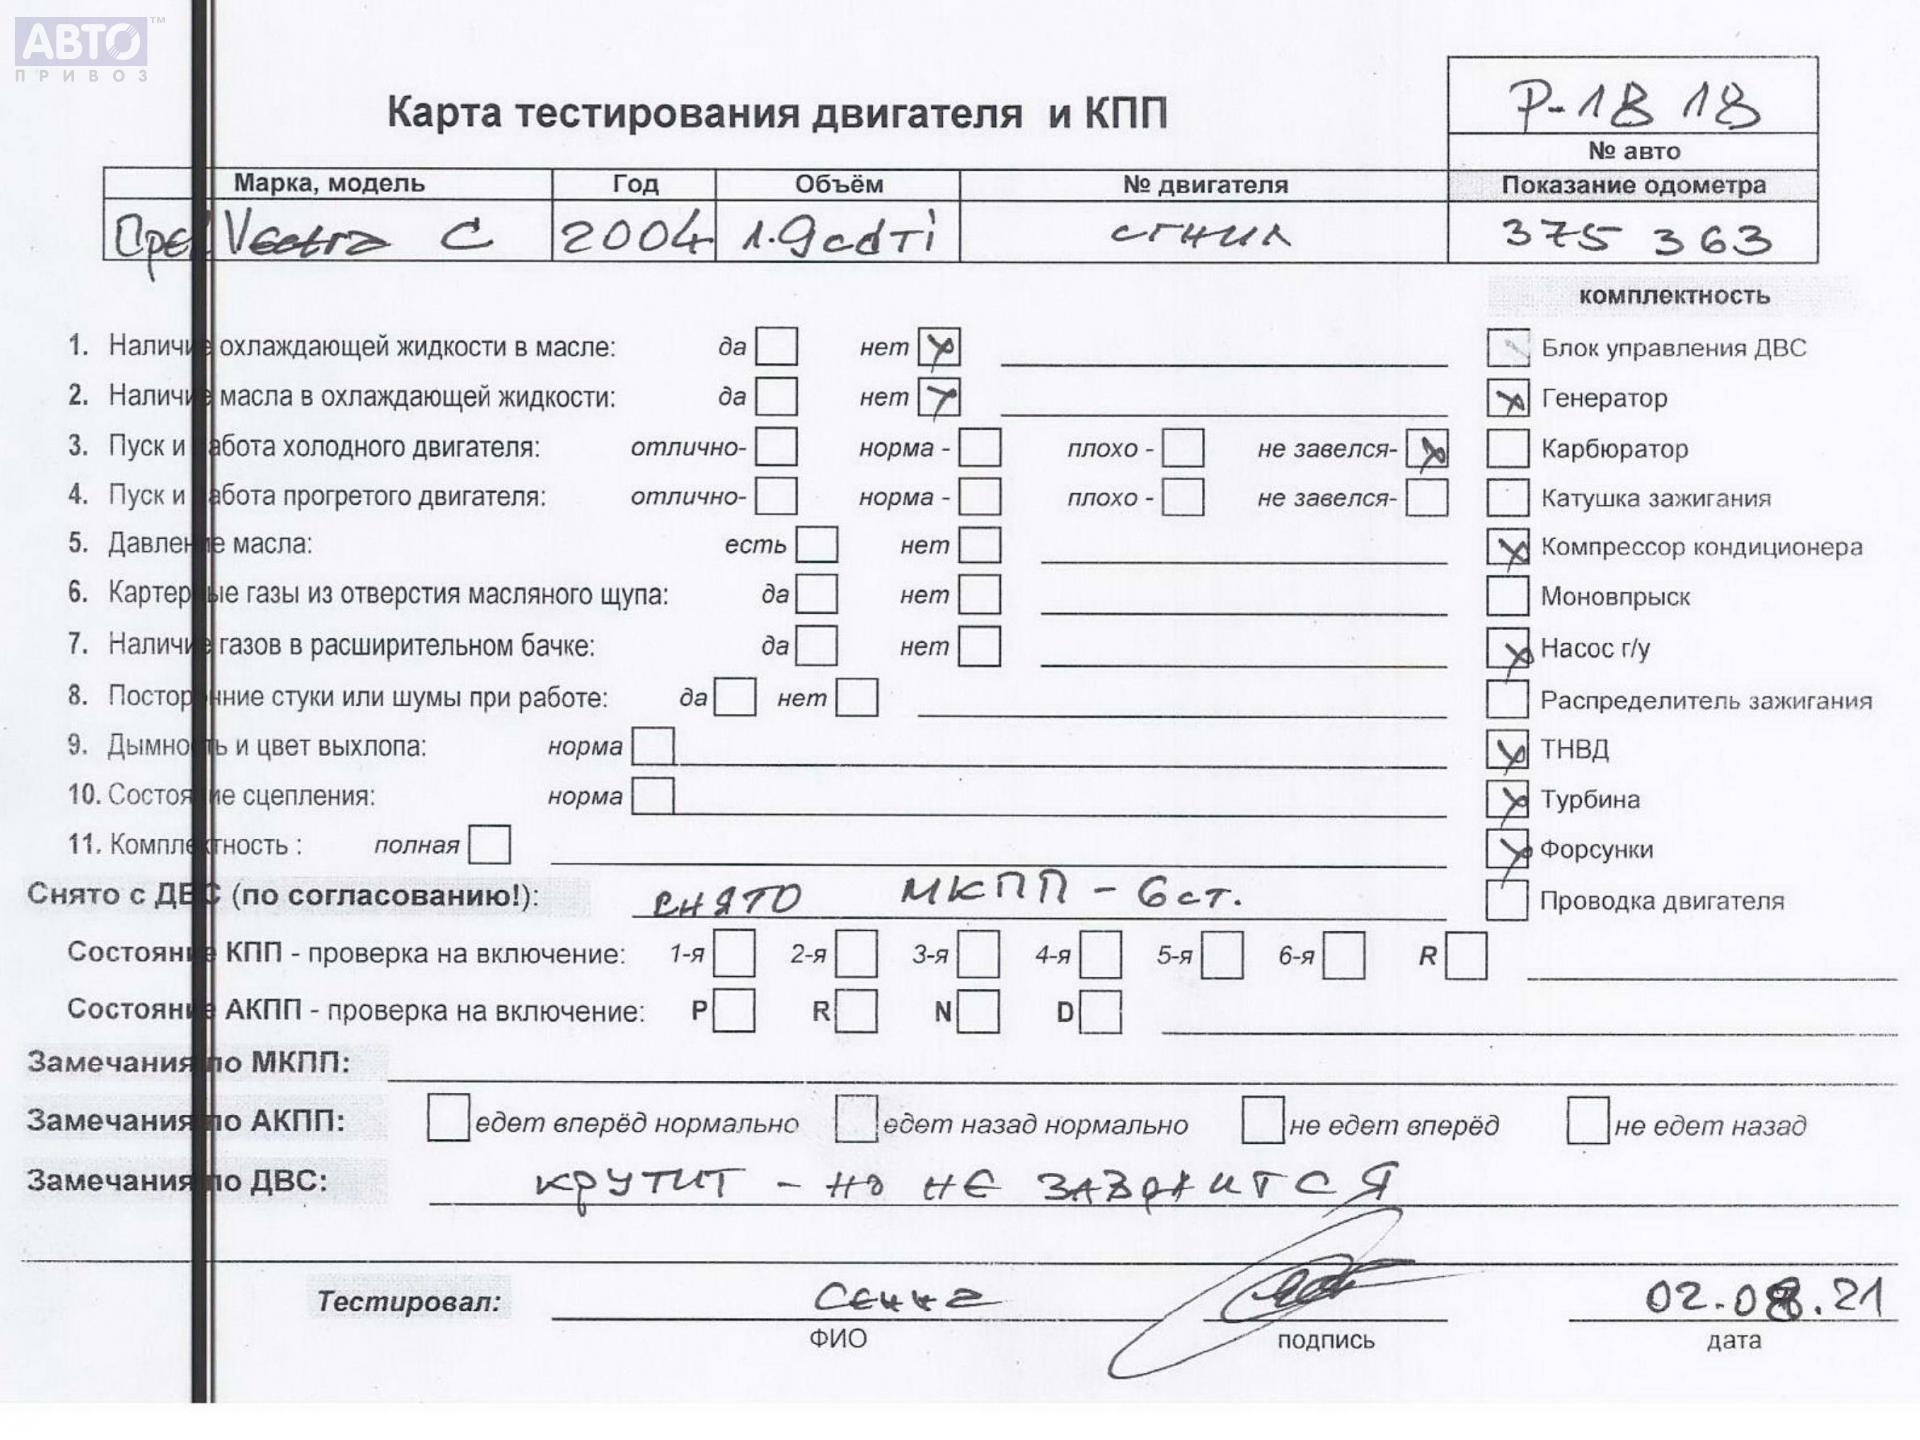 АВТО™
ПРИВОЗ
Р-18 18
Карта тестирования двигателя и КПП
№ авто
Марка, модель Год Объём № двигателя Показание одометра
Opel Vectra C 2004 1.9cdTi сгнил 375 363
комплектность
1. Наличие охлаждающей жидкости в масле: да нет x Блок управления ДВС
2. Наличие масла в охлаждающей жидкости: да нет x x Генератор
3. Пуск и работа холодного двигателя: отлично- норма - плохо - не завелся- x Карбюратор
4. Пуск и работа прогретого двигателя: отлично- норма - плохо - не завелся- Катушка зажигания
5. Давление масла: есть нет x Компрессор кондиционера
6. Картерные газы из отверстия масляного щупа: да нет Моновпрыск
7. Наличие газов в расширительном бачке: да нет x Насос г/у
8. Посторонние стуки или шумы при работе: да нет Распределитель зажигания
9. Дымность и цвет выхлопа: норма x ТНВД
10. Состояние сцепления: норма x Турбина
11. Комплектность : полная x Форсунки
Снято с ДВС (по согласованию!): снято МКПП - 6 ст. Проводка двигателя
Состояние КПП - проверка на включение: 1-я 2-я 3-я 4-я 5-я 6-я R
Состояние АКПП - проверка на включение: P R N D
Замечания по МКПП:
Замечания по АКПП: едет вперёд нормально едет назад нормально не едет вперёд не едет назад
Замечания по ДВС: крутит - но не заводится
Тестировал: 02.08.21
ФИО подпись дата